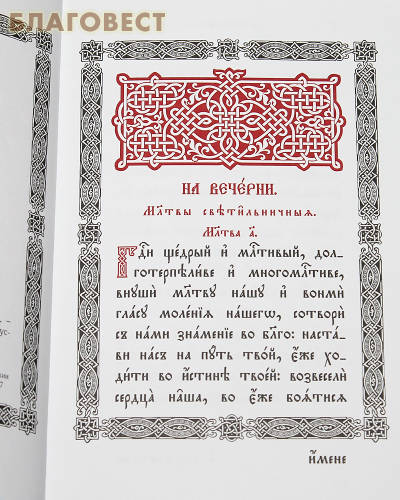 БЛАГОВЕСТ
НА ВЕЧЕ́РНИ.
Мл҃твы свѣти́льничныѧ.
Мл҃тва а҃.
Гдⷭ҇и ще́дрый и҆ млⷭ҇тивый, дол-
готерпѣли́ве и҆ многомлⷭ҇тиве,
внꙋшѝ мл҃твꙋ на́шꙋ и҆ вонмѝ
гла́сꙋ моле́нїѧ на́шегѡ, сотворѝ
съ на́ми зна́менїе во бл҃го: наста́-
ви на́съ на пꙋ́ть тво́й, є҆́же хо-
ди́ти во и҆́стинѣ твое́й: возвеселѝ
сердца̀ на̑ша, во є҆́же боѧ́тисѧ
и҆́мене
ус-
7